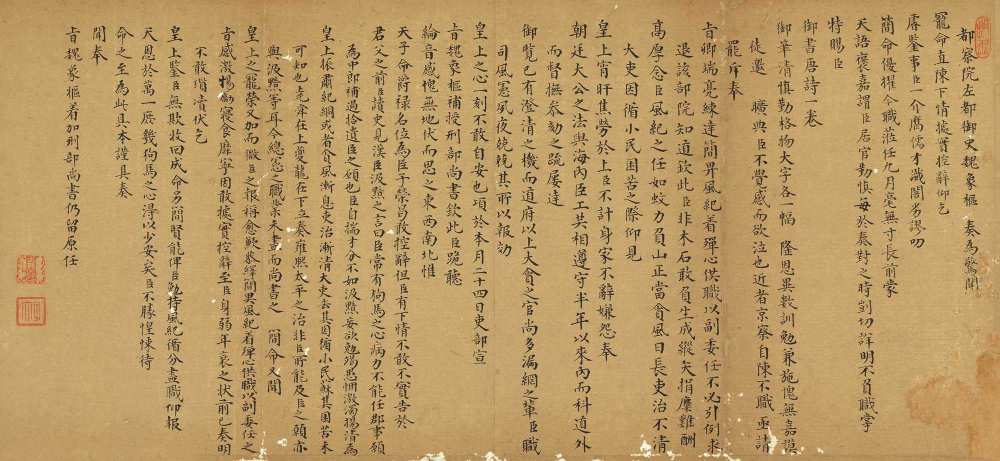 都察院左都御史魏象樞　奏為驚聞
寵命直陳下情據實控辭仰乞
睿鑒事臣一介鹰儒才識闇劣謬叨
簡命優擢今職蒞任九月毫無寸長前蒙
天語褒嘉謂臣居官勤慎每於奏對之時剴切詳明不負職掌
特賜臣
御書唐詩一卷
御筆清慎勤格物大字各一幅　隆恩異數訓勉兼施愧無嘉謨
徒邀　曠典臣不覺感而欲泣也近者京察自陳不職亟請
罷斥奉
旨卿端亮練達簡畀風紀着殫心供職以副委任不必引例求
退該部院知道欽此臣非木石敢負生成縱矢捐糜難酬
高厚念臣風紀之任如蚊力負山正當貪風日長吏治不清
大吏因循小民困苦之際仰見
皇上宵旰焦勞於上臣不計身家不辭嫌怨奉
朝廷大公之法與海內臣工共相遵守半年以來內而科道外
而督撫參劾之疏屢達
御覽已有澄清之機而道府以上大貪之官尚多漏網之輩臣職
司風憲夙夜兢兢其所以報効
皇上之心一刻不敢自安也項於本月二十四日吏部宣
旨魏象樞補授刑部尚書欽此臣跪聽
綸音感愧無地伏而思之東西南北惟
天子命爵祿名位為臣子榮若敢控辭但臣有下情不敢不實告於
君父之前臣讀史見漢臣汲黯之言曰臣常有狗馬之心病力不能任郡事願
為中郎補過拾遺臣之願也臣自揣才分不如汲黯妄欲勉竭愚慵激濁揚清為
皇上振肅紀綱或者貪風漸息吏治漸清大吏去其因循小民穌其困苦未
可知也堯舜在上夔龍在下立奏雍熙太平之治非臣所能及臣之願亦
與汲黯等耳今總憲之職業未盡而尚書之　簡命又聞
皇上之寵榮又加而微臣之報稱愈歉恭繹簡畀風紀着殫心供職以副委任之
旨感激惕勵寢食靡寧因敢據實控辭至臣身弱年衰之狀前已奏明
不敢瑣瀆伏乞
皇上鑒臣無欺收回成命另簡賢能俾臣勉持風紀循分盡職仰報
天恩於萬一庶幾狗馬之心淂以少安矣臣不勝惶悚待
命之至為此具本謹具奏
聞奉
旨魏象樞着加刑部尚書仍留原任